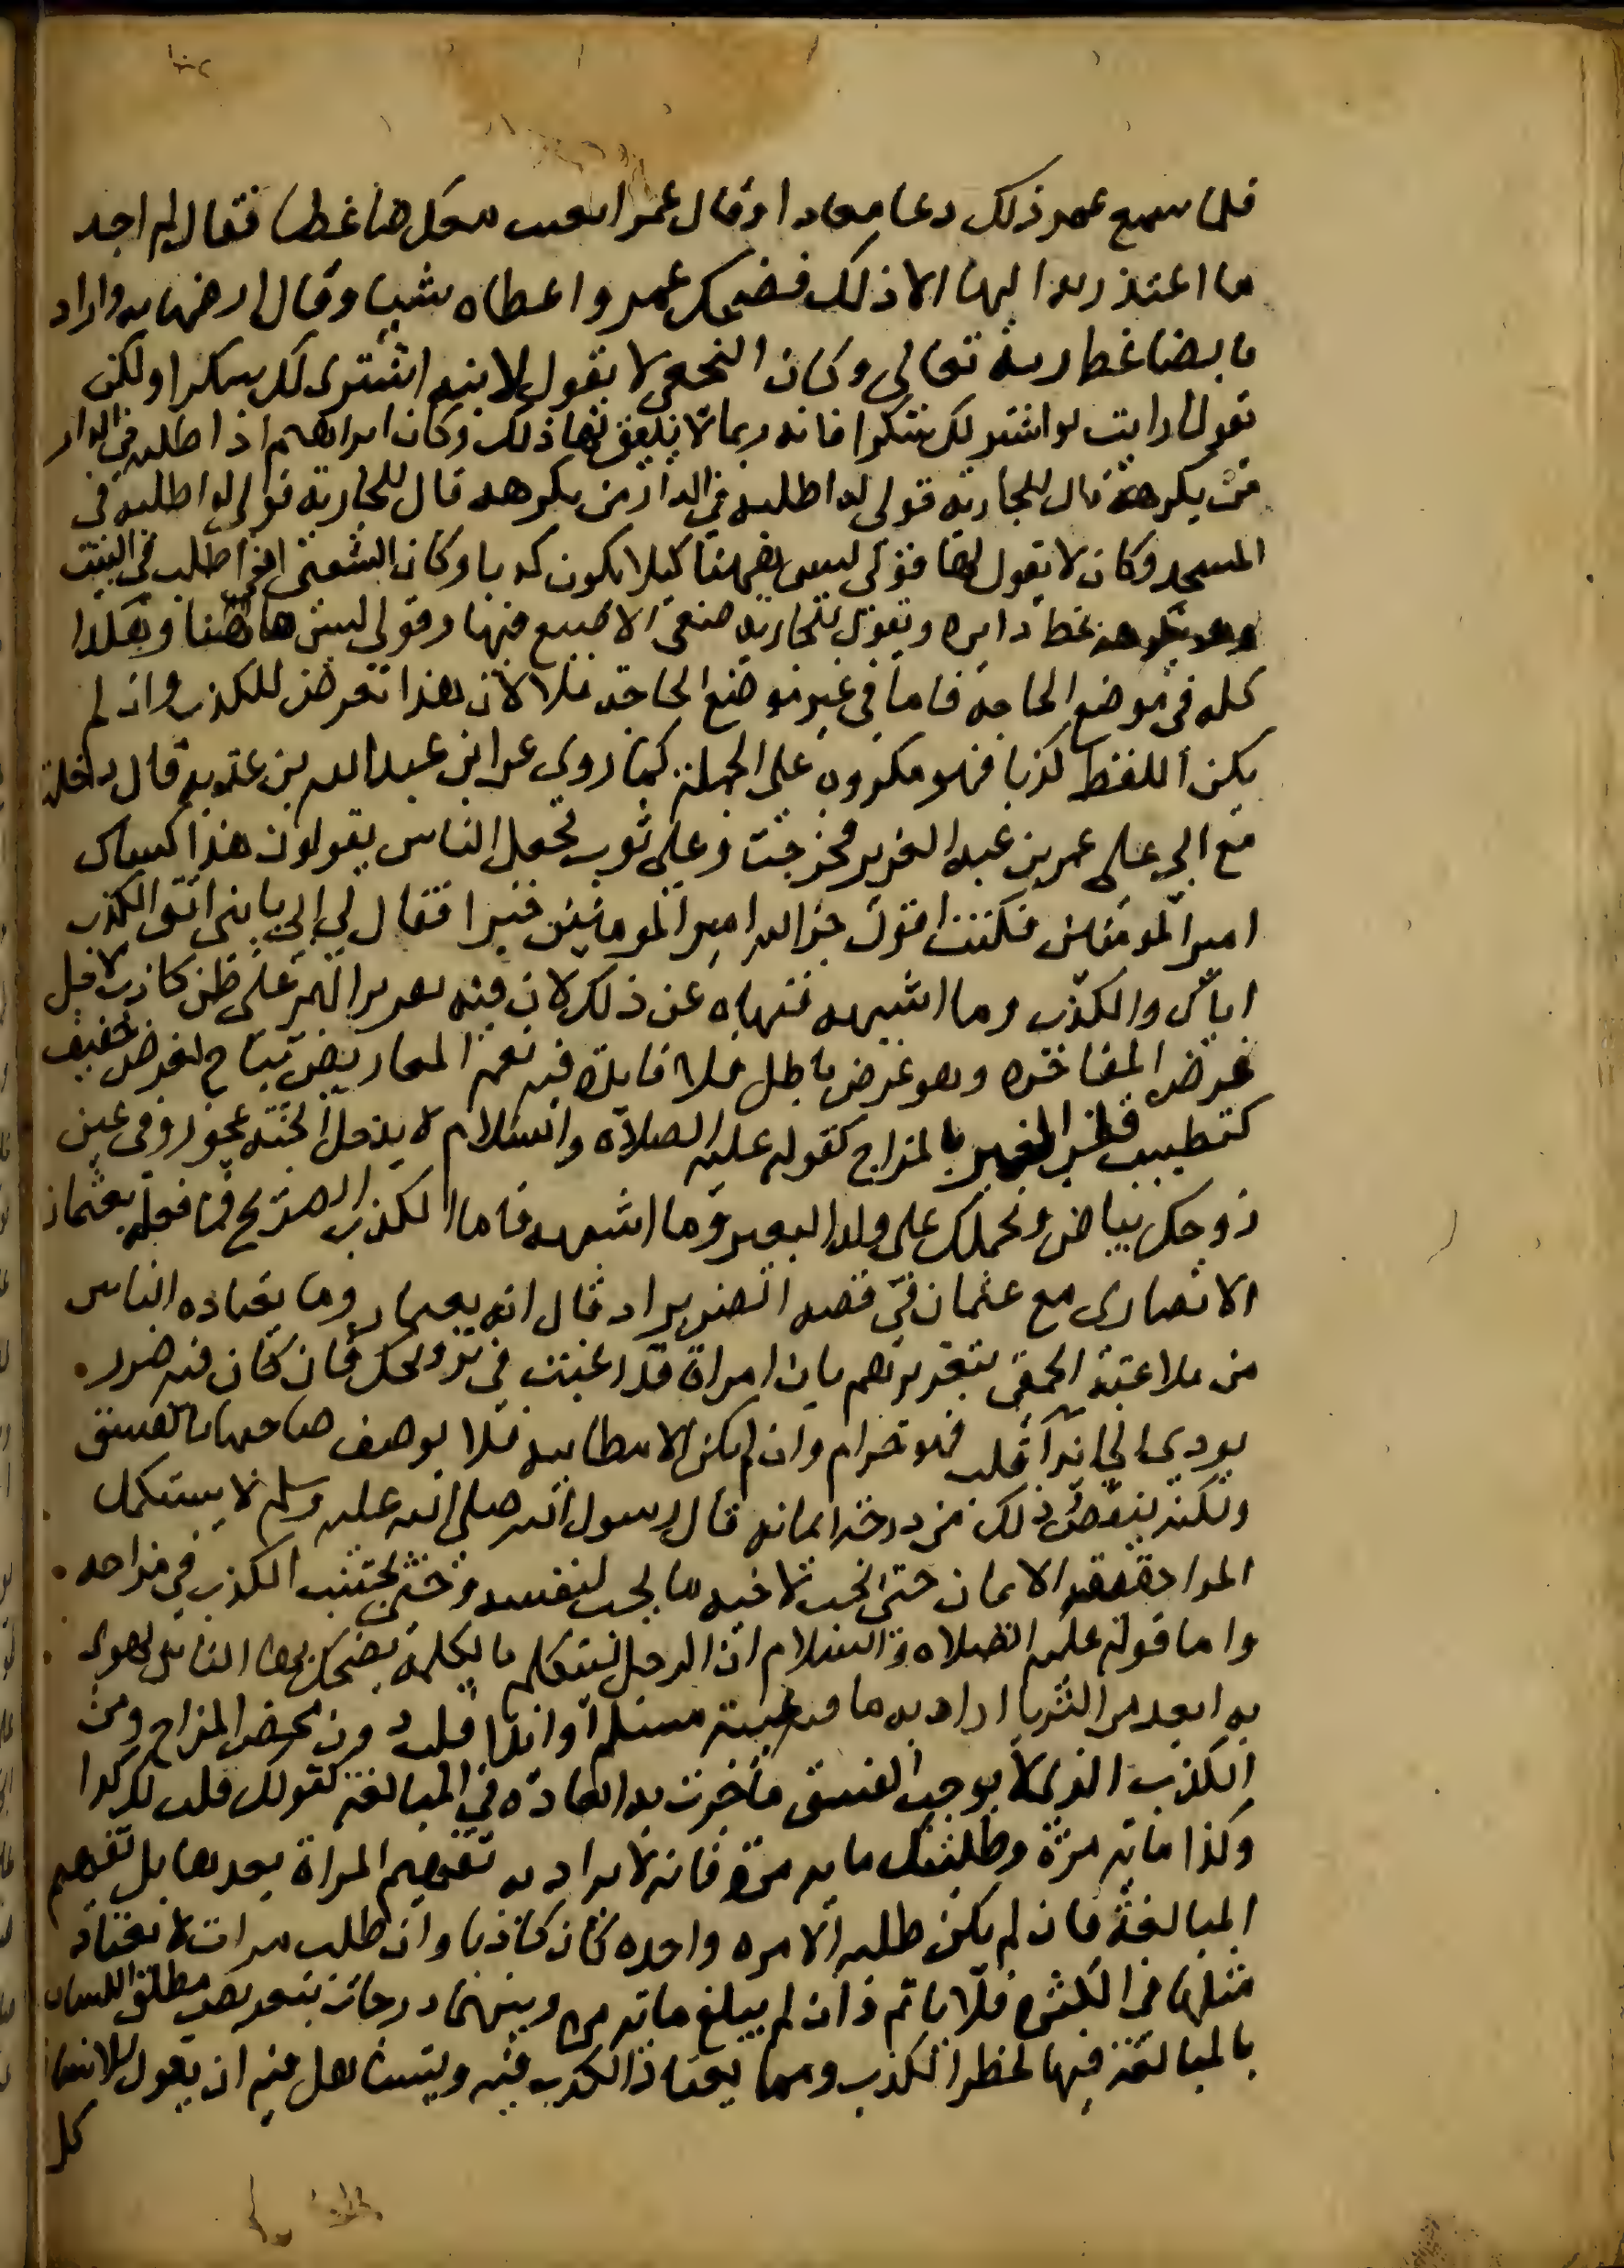 فلما سمع عمر ذلك دعا معاذا وقال عمر ابعث معك ضاغطا فقال لم اجد
ما اعتذر به اليها الا ذلك فضحك عمر واعطاه شيا وقال ارضها به واراد
بالضاغط ربه تعالى وكان النخعي لا يقول لابنه اشترى لك سكرا ولكن
يقول ارايت لو اشتر لك سكرا فانه ربما لا يتفق لها ذلك وكان ابراهيم اذا طلبه في الدار
من يكرهه قال للجارية قولى له اطلبه في الدار من يكرهه قال للجارية قولى له اطلبه في
المسجد وكان لا يقول لها قولى ليس ههنا كيلا يكون كذبا وكان الشعبى اذا طلب في البيت
وهو يكرهه خط دايره ويقول للجارية ضعى الاصبع فيها وقولى ليس هاهنا وهكذا
كله في موضع الحاجة فاما في غير موضع الحاجة فلا لان هذا تعرض للكذب وان لم
يكن اللفظ كذبا فهو مكروه على الجملة كما روى عن ابن عبد الله بن عتبه قال دخلت
مع ابي على عمر بن عبد العزيز فخرجت وعلى ثوب فجعل الناس يقولون هذا كساك
امير المومنين فكنت اقول جزا الله امير المومنين خيرا فقال لي ابي يا بنى اتق الكذب
اياك والكذب وما اشبهه فنهاه عن ذلك لان فيه تقريرا لهم على ظن كاذب لاجل
غرض المفاخره وهو غرض باطل فلا فايدة فيه نعم المعاريض تباح لغرض خفيف
كتطييب قلب الغير بالمزاح كقوله عليه الصلاة والسلام لا يدخل الجنة عجوز وفى عين
زوجك بياض ونحملك على ولد البعير وما اشبهه فاما الكذب الصريح كما فعله نعثمان
الانصارى مع عثمان في قصه الضرير اذ قال انه نعيمان وما يعتاده الناس
من ملاعبة الحمقى بتغريرهم بان امراة قد رغبت في تزويجك فان كان فيه ضرر
يودي الى ايذا قلب فهو حرام وان لم يكن الا مطايبه فلا يوصف صاحبها بالفسق
ولكنه ينقص ذلك من درجة ايمانه قال رسول الله صلى الله عليه وسلم لا يستكمل
المرا حقيقة الايمان حتى يحب لاخيه ما يحب لنفسه وحتى يجتنب الكذب في مزاحه
واما قوله عليه الصلاه والسلام ان الرجل ليتكلم بالكلمة يضحك بها الناس يهوى
به ابعد من الثريا اراد به ما فيه غيبة مسلم او ايذا قلب دون محض المزاح ومن
الكذب الذى لا يوجب الفسق ما جرت به العادة في المبالغة كقولك قلت لك كذا
وكذا ماية مرة وطلبتك ماية مرة فانه لا يراد به تفهيم المراة بعددها بل تفهيم
المبالغة فان لم يكن طلبه الا مره واحده كان كاذبا وان طلب مرات لا يعتاد
مثلها في الكثره فلا ياثم وان لم يبلغ ماية مرة وبينهما درجات يتعرض مطلق اللسان
بالمبالغة فيها لخطر الكذب ومما يعتاد الكذب فيه ويتساهل فيه ان يقول للانسان
كل